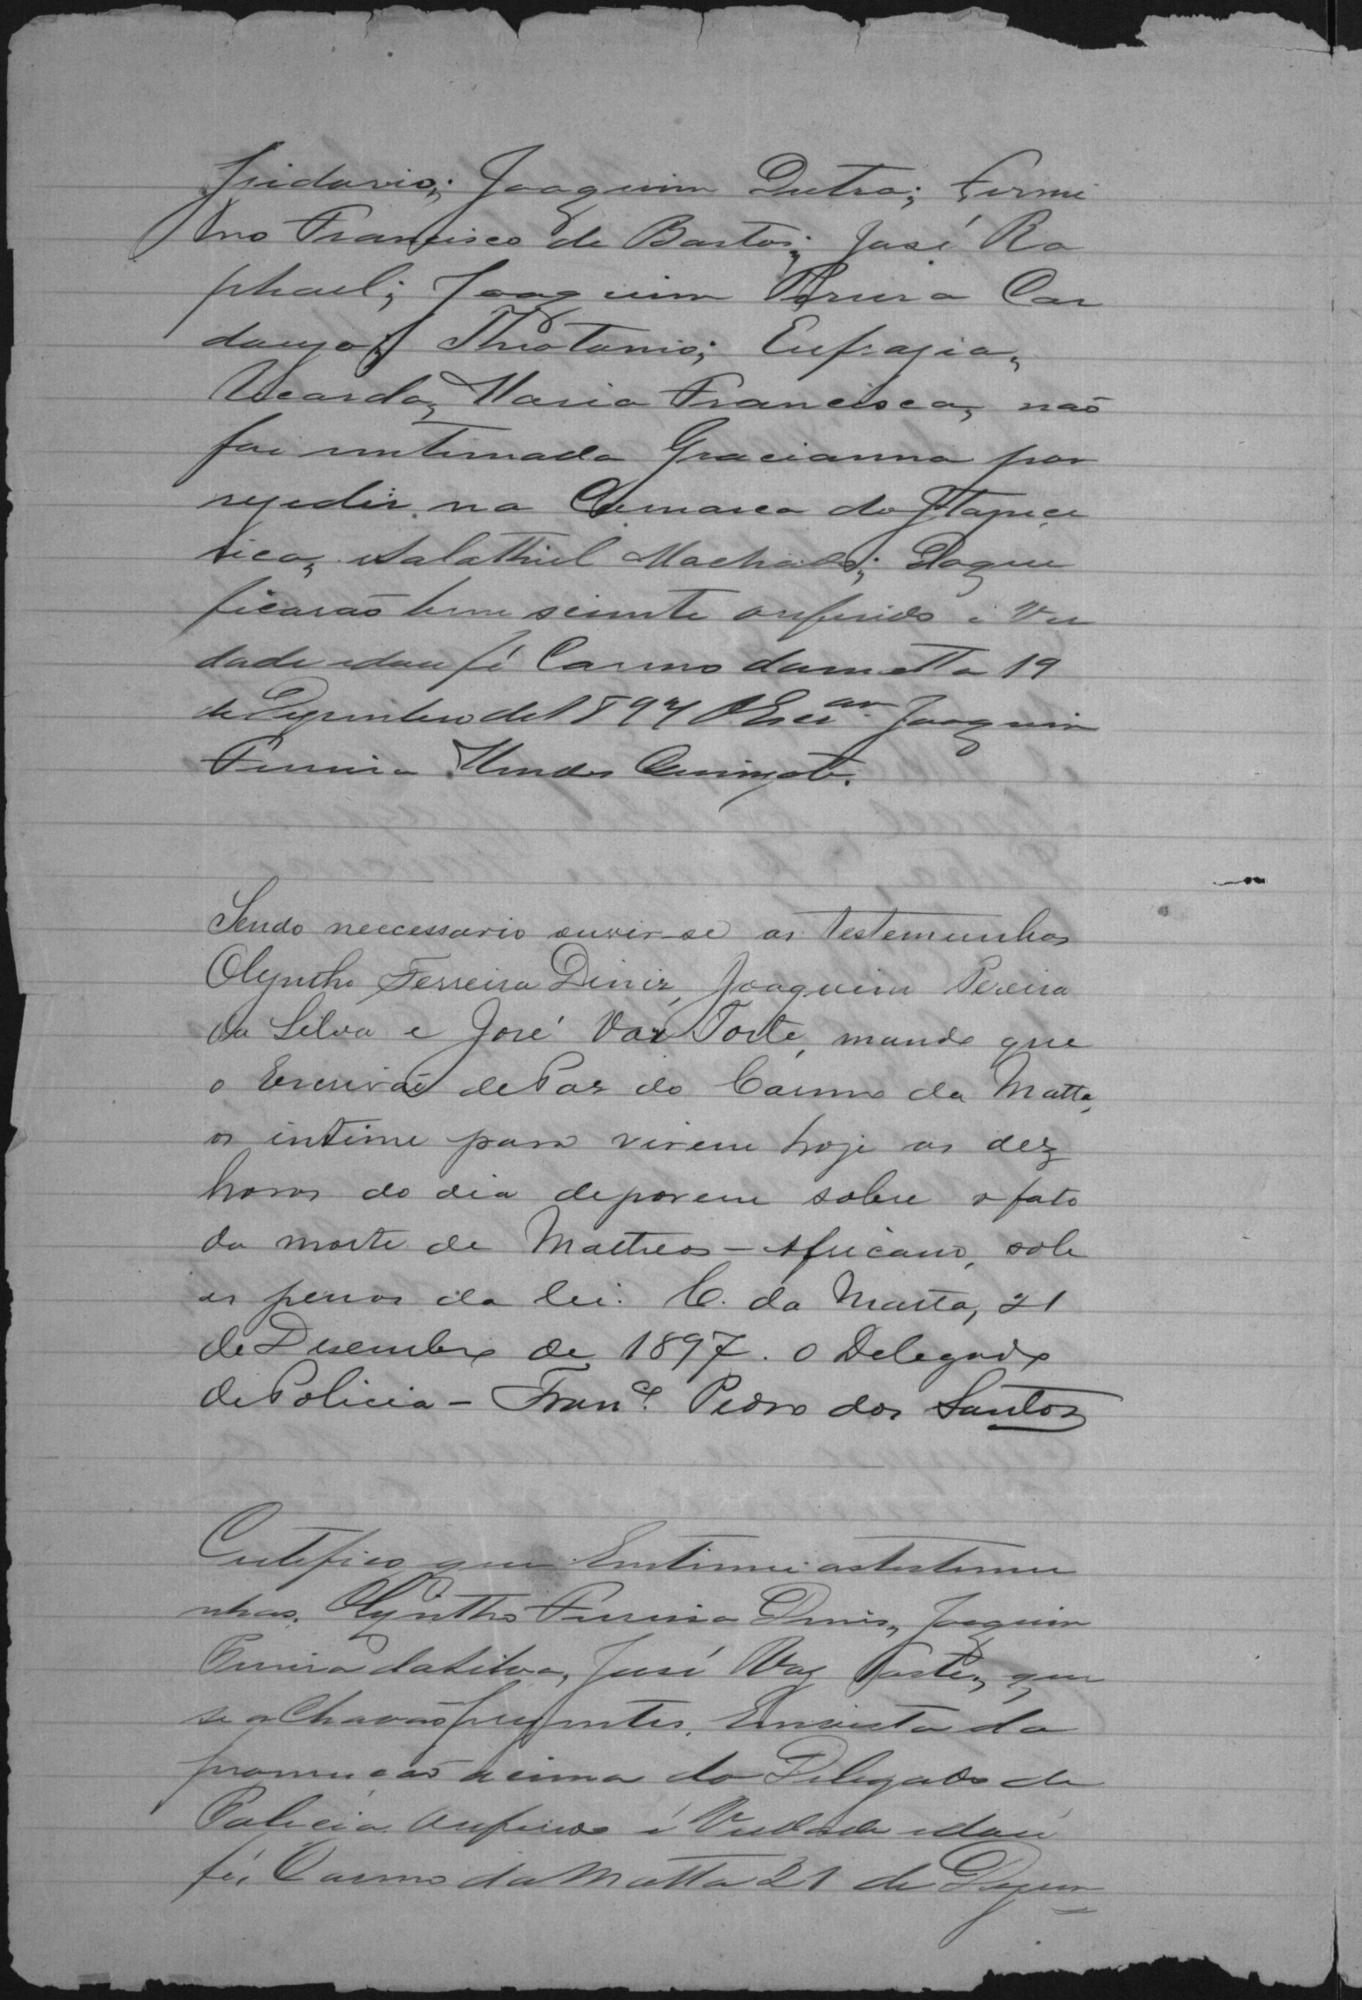 Izidario; Joaquim Dutra; Firmi
no Francisco de Bastos; José Ra
phael; Joaquim Pereira Car
dauzo; Theotonio; Eufrazia,
Ricarda, Maria Francisca, não
foi intimada Gracianna por
rezedir na Comarca da Itapece
rica, Salathiel Machado; Doque
ficarão bem sciente orefirido é Ver
dade edou fé Carmo damatta 19
de Dezembro de 1897 O Escr.am Joaquim
Ferreira Mendes
Sendo neccessario ouvir-se as testemunhas
Olyntho Ferreira Diniz, Joaquim Pereira
da Silva e José Vaz Torte, mando que
o Escrivão de Paz do Carmo da Matta,
os intime para virem hoje as dez
horas do dia deporem sobre o fato
da morte de Matheos - Africano, sob
as penas da lei. C. da Matta, 21
de Desembro de 1897. O Delegado
de Policia - Fran.co Pedro dos Santos
Certifico que Emtimei astestemu
nhas. Olyntho Ferreira Dinis, Joaquim
Pereira da Silva, José Vaz Torte, que
se achavão prezentes. Emvista da
promução acima do Delegado de
Policia Orefirido é Verdade edou
fé, Carmo da Matta 21 de Dezem